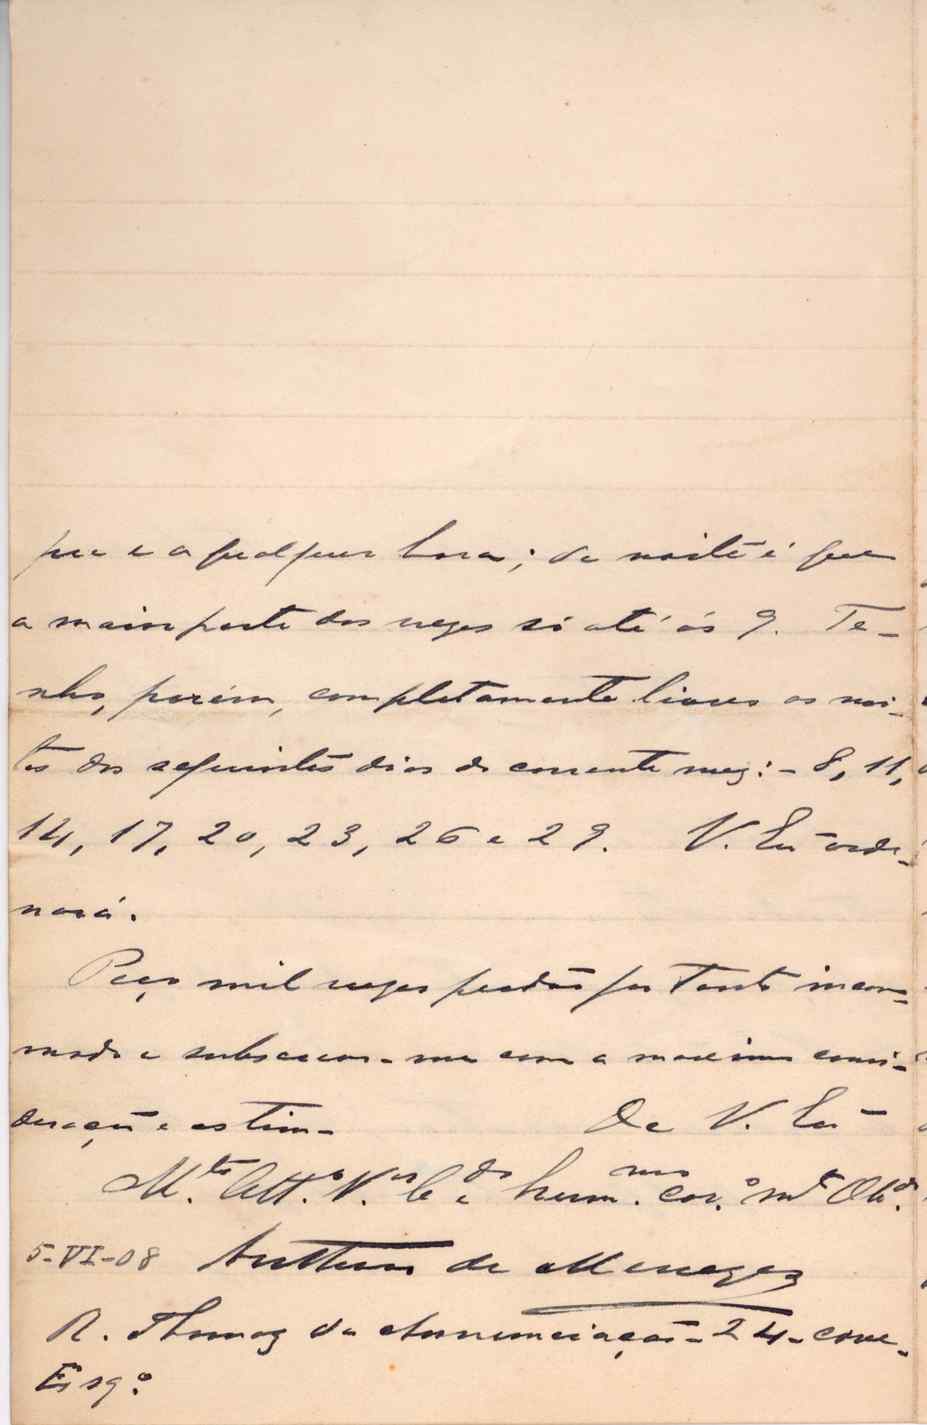 que e a qualquer hora; de noite é que
a maior parte das vezes só até ás 9. Te-
nho, porém, completamente livres as noi-
tes dos seguintes dias do corrente mez: - 8, 11,
14, 17, 20, 23, 26 e 29. V. Exª orde-
nará.
Peço mil vezes perdão por tanto incom-
modo e subscrevo-me com a maxima consi-
deração e estima
De V. Exª
M.to Att.º V.or C.do hum. cor.º m.t Ob.do
5-VI-08 Anthero de Menezes
R. Thomaz da Annunciação - 24 - cave -
Esq.º